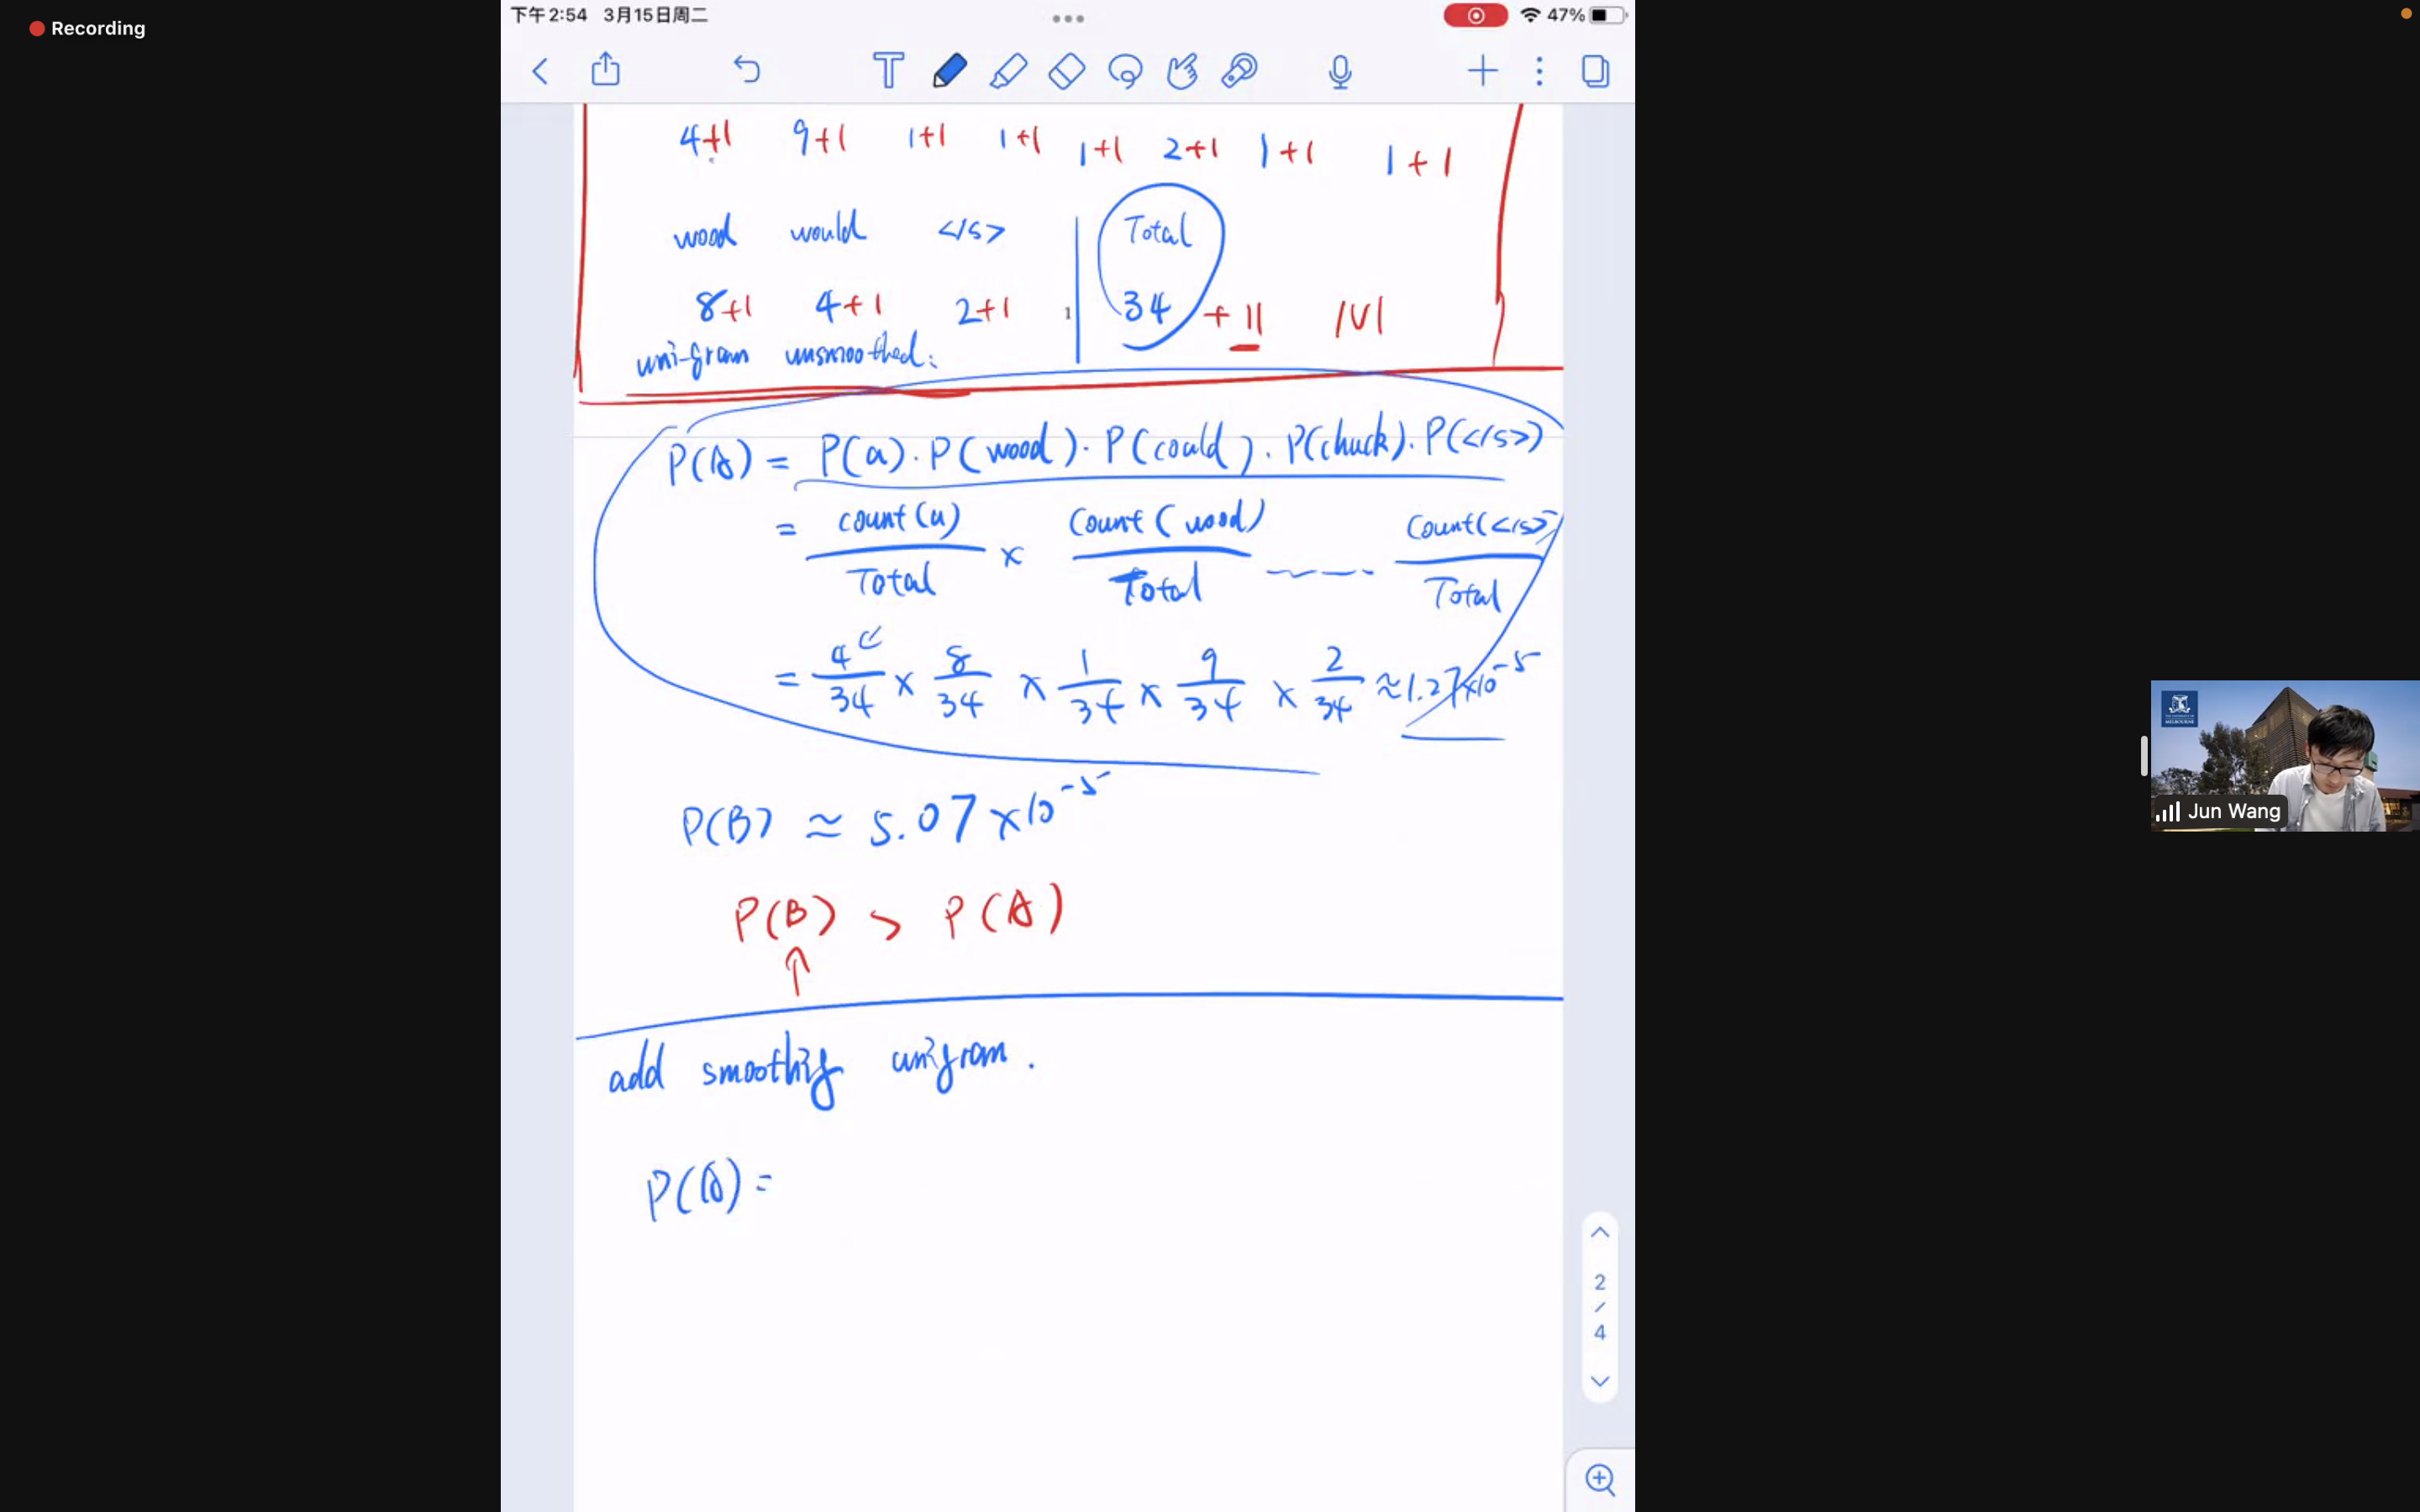 Recording
下午2:54 3月15日周二
47%
4+1 9+1 1+1 1+1 1+1 2+1 1+1 1+1
wood would </s> Total
8+1 4+1 2+1 1 34 + 11 |V|
uni-gram unsmoothed:
P(A) = P(a). P(wood). P(could). P(chuck). P(</s>)
= count(a) / Total × Count(wood) / Total ---- Count(</s>) / Total
= 4/34 × 8/34 × 1/34 × 9/34 × 2/34 ≈ 1.27×10^-5
P(B) ≈ 5.07 ×10^-5
P(B) > P(A)
add smoothing unigram.
P(A) =
2
/
4
THE UNIVERSITY OF
MELBOURNE
Jun Wang